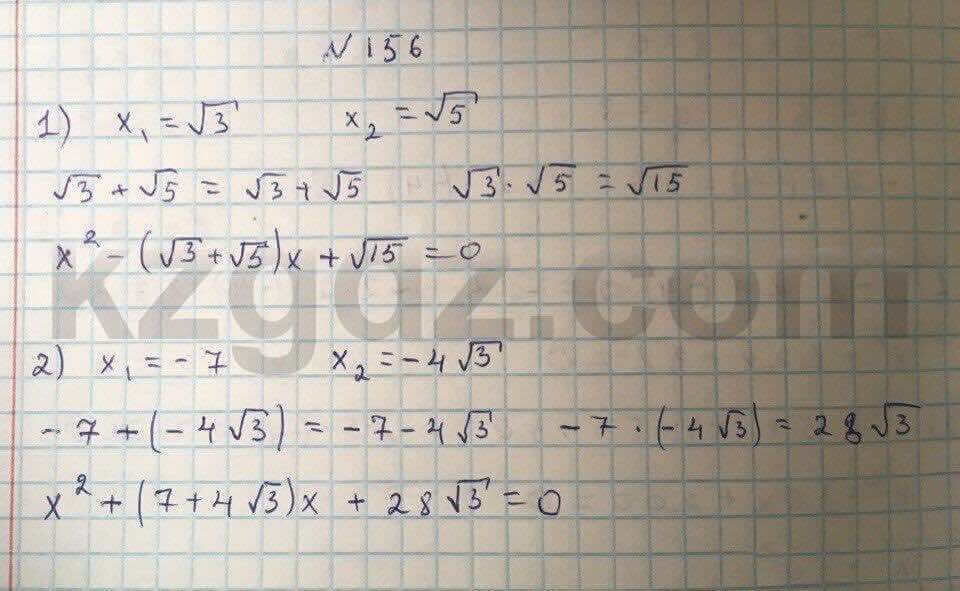 № 156
1) x₁ = √3 x₂ = √5
√3 + √5 = √3 + √5 √3 · √5 = √15
x² - (√3 + √5)x + √15 = 0
kzgdz.com
2) x₁ = - 7 x₂ = - 4√3
- 7 + (- 4√3) = - 7 - 4√3 - 7 · (- 4√3) = 28√3
x² + (7 + 4√3)x + 28√3 = 0